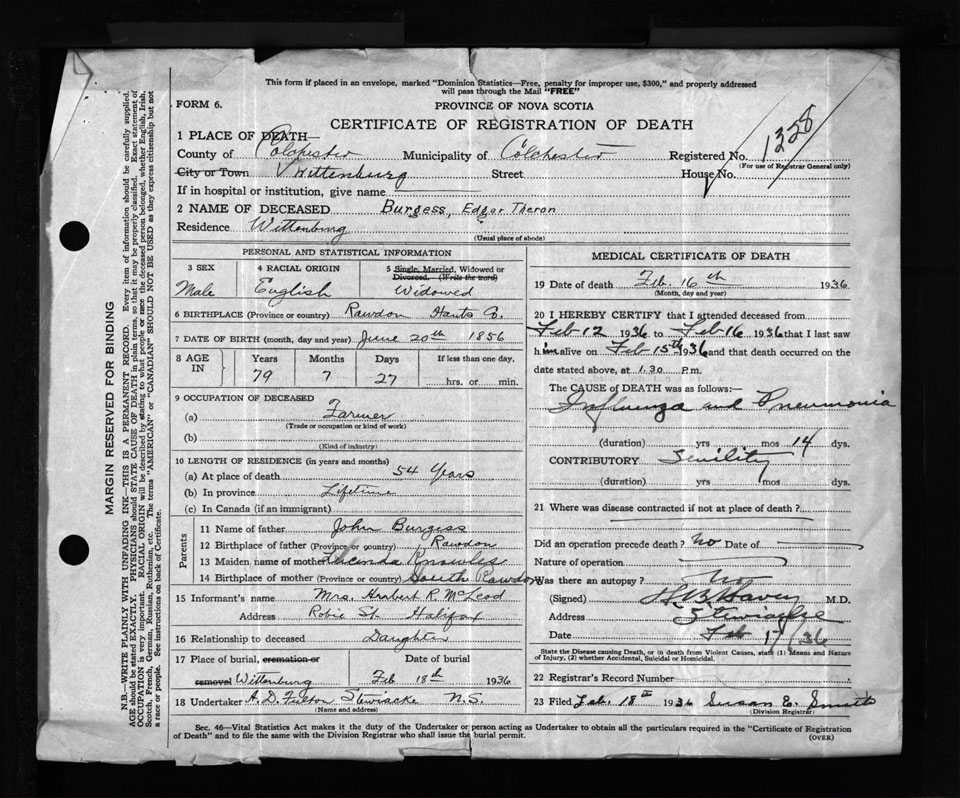 This form if placed in an envelope, marked "Dominion Statistics—Free, penalty for improper use, $300," and properly addressed
will pass through the Mail "FREE"
FORM 6.
PROVINCE OF NOVA SCOTIA
CERTIFICATE OF REGISTRATION OF DEATH
1328
1 PLACE OF DEATH—
County of Colchester Municipality of Colchester Registered No.
(For use of Registrar General only)
City or Town Wittenburg Street House No.
If in hospital or institution, give name
2 NAME OF DECEASED Burgess, Edgar Theron
Residence Wittenburg
(Usual place of abode)
PERSONAL AND STATISTICAL INFORMATION
3 SEX 4 RACIAL ORIGIN 5 Single, Married, Widowed or
Divorced. (Write the word)
Male English Widowed
6 BIRTHPLACE (Province or country) Rawdon Hants Co.
7 DATE OF BIRTH (month, day and year) June 20th 1856
8 AGE IN Years Months Days If less than one day,
79 7 27 hrs. or min.
9 OCCUPATION OF DECEASED
(a) Farmer
(Trade or occupation or kind of work)
(b)
(Kind of industry)
10 LENGTH OF RESIDENCE (in years and months)
(a) At place of death 54 Years
(b) In province Lifetime
(c) In Canada (if an immigrant)
Parents
11 Name of father John Burgess
12 Birthplace of father (Province or country) Rawdon
13 Maiden name of mother Knowles
14 Birthplace of mother (Province or country) South Rawdon
15 Informant's name Mrs. Herbert R. McLeod
Address Robie St. Halifax
16 Relationship to deceased Daughter
17 Place of burial, cremation or Date of burial
removal Wittenburg Feb 18th 1936
18 Undertaker A. D. Fulton Stewiacke N.S.
(Name and address)
MEDICAL CERTIFICATE OF DEATH
19 Date of death Feb. 16th 1936.
(Month, day and year)
20 I HEREBY CERTIFY that I attended deceased from
Feb 12 1936 to Feb 16 1936 that I last saw
him alive on Feb 15th 1936 and that death occurred on the
date stated above, at 1.30 P.m.
The CAUSE OF DEATH was as follows:—
Influenza and Pneumonia
(duration) yrs mos 14 dys.
CONTRIBUTORY Senility
(duration) yrs mos dys.
21 Where was disease contracted if not at place of death?
Did an operation precede death? No Date of
Nature of operation
Was there an autopsy? No
(Signed) M.D.
Address Stewiacke
Date Feb 17/36
State the Disease causing Death, or in death from Violent Causes, state (1) Means and Nature
of Injury, (2) whether Accidental, Suicidal or Homicidal.
22 Registrar's Record Number
23 Filed Feb. 18th 1936 Susan E. Smith
(Division Registrar)
Sec. 46—Vital Statistics Act makes it the duty of the Undertaker or person acting as Undertaker to obtain all the particulars required in the "Certificate of Registration
of Death" and to file the same with the Division Registrar who shall issue the burial permit.
(OVER)
MARGIN RESERVED FOR BINDING
N.B.—WRITE PLAINLY WITH UNFADING INK—THIS IS A PERMANENT RECORD. Every item of information should be carefully supplied.
AGE should be stated EXACTLY. PHYSICIANS should STATE CAUSE OF DEATH in plain terms, so that it may be properly classified. Exact statement of
OCCUPATION is very important. RACIAL ORIGIN will be described by stating to what people or race the deceased person belonged, whether English, Irish,
Scotch, French, German, Russian, Ruthenian, etc. The terms "AMERICAN" or "CANADIAN" SHOULD NOT BE USED as they express citizenship but not
a race or people. See instructions on back of Certificate.